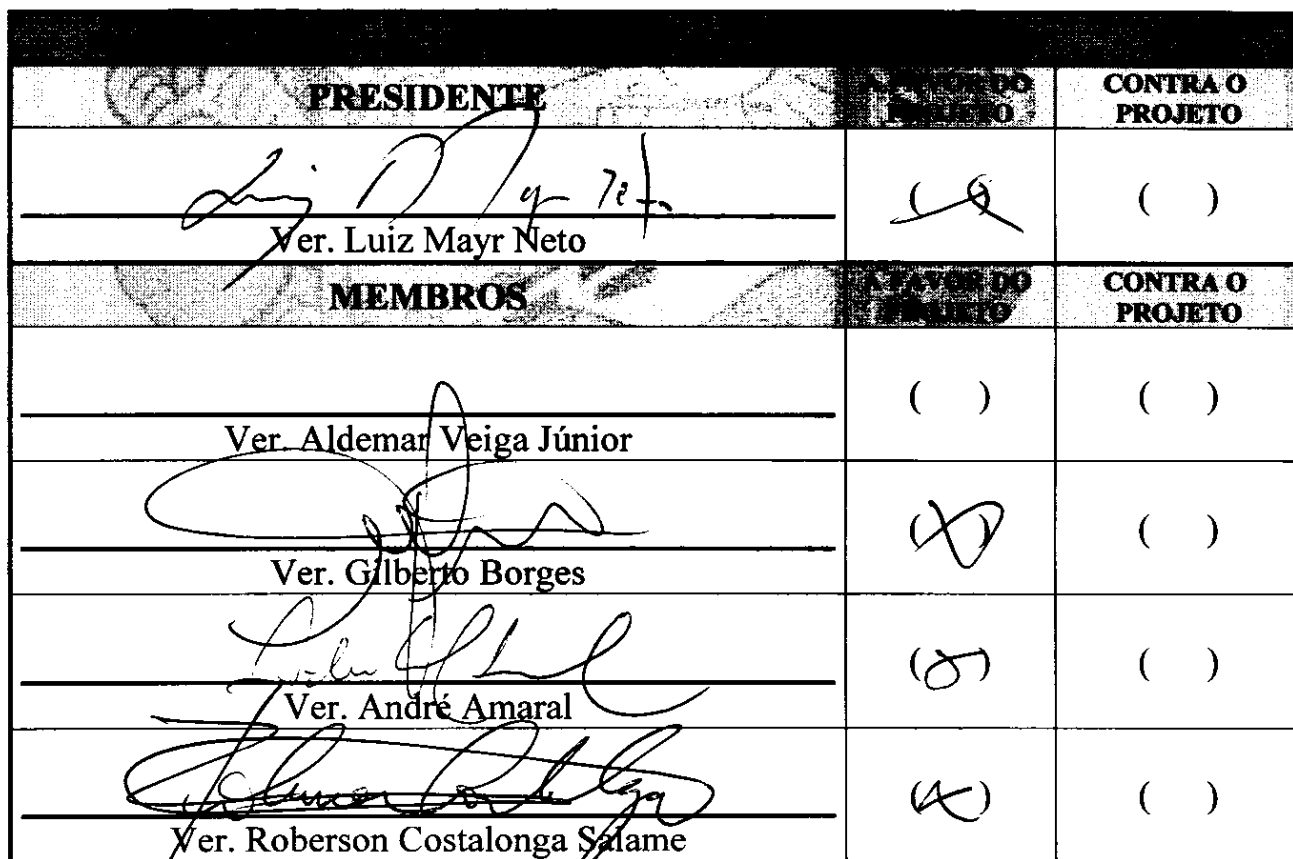 PRESIDENTE
A FAVOR DO PROJETO
CONTRA O PROJETO
Ver. Luiz Mayr Neto
( )
MEMBROS
A FAVOR DO PROJETO
CONTRA O PROJETO
Ver. Aldemar Veiga Júnior
( ) ( )
Ver. Gilberto Borges
( )
Ver. André Amaral
( )
Ver. Roberson Costalonga Salame
( )